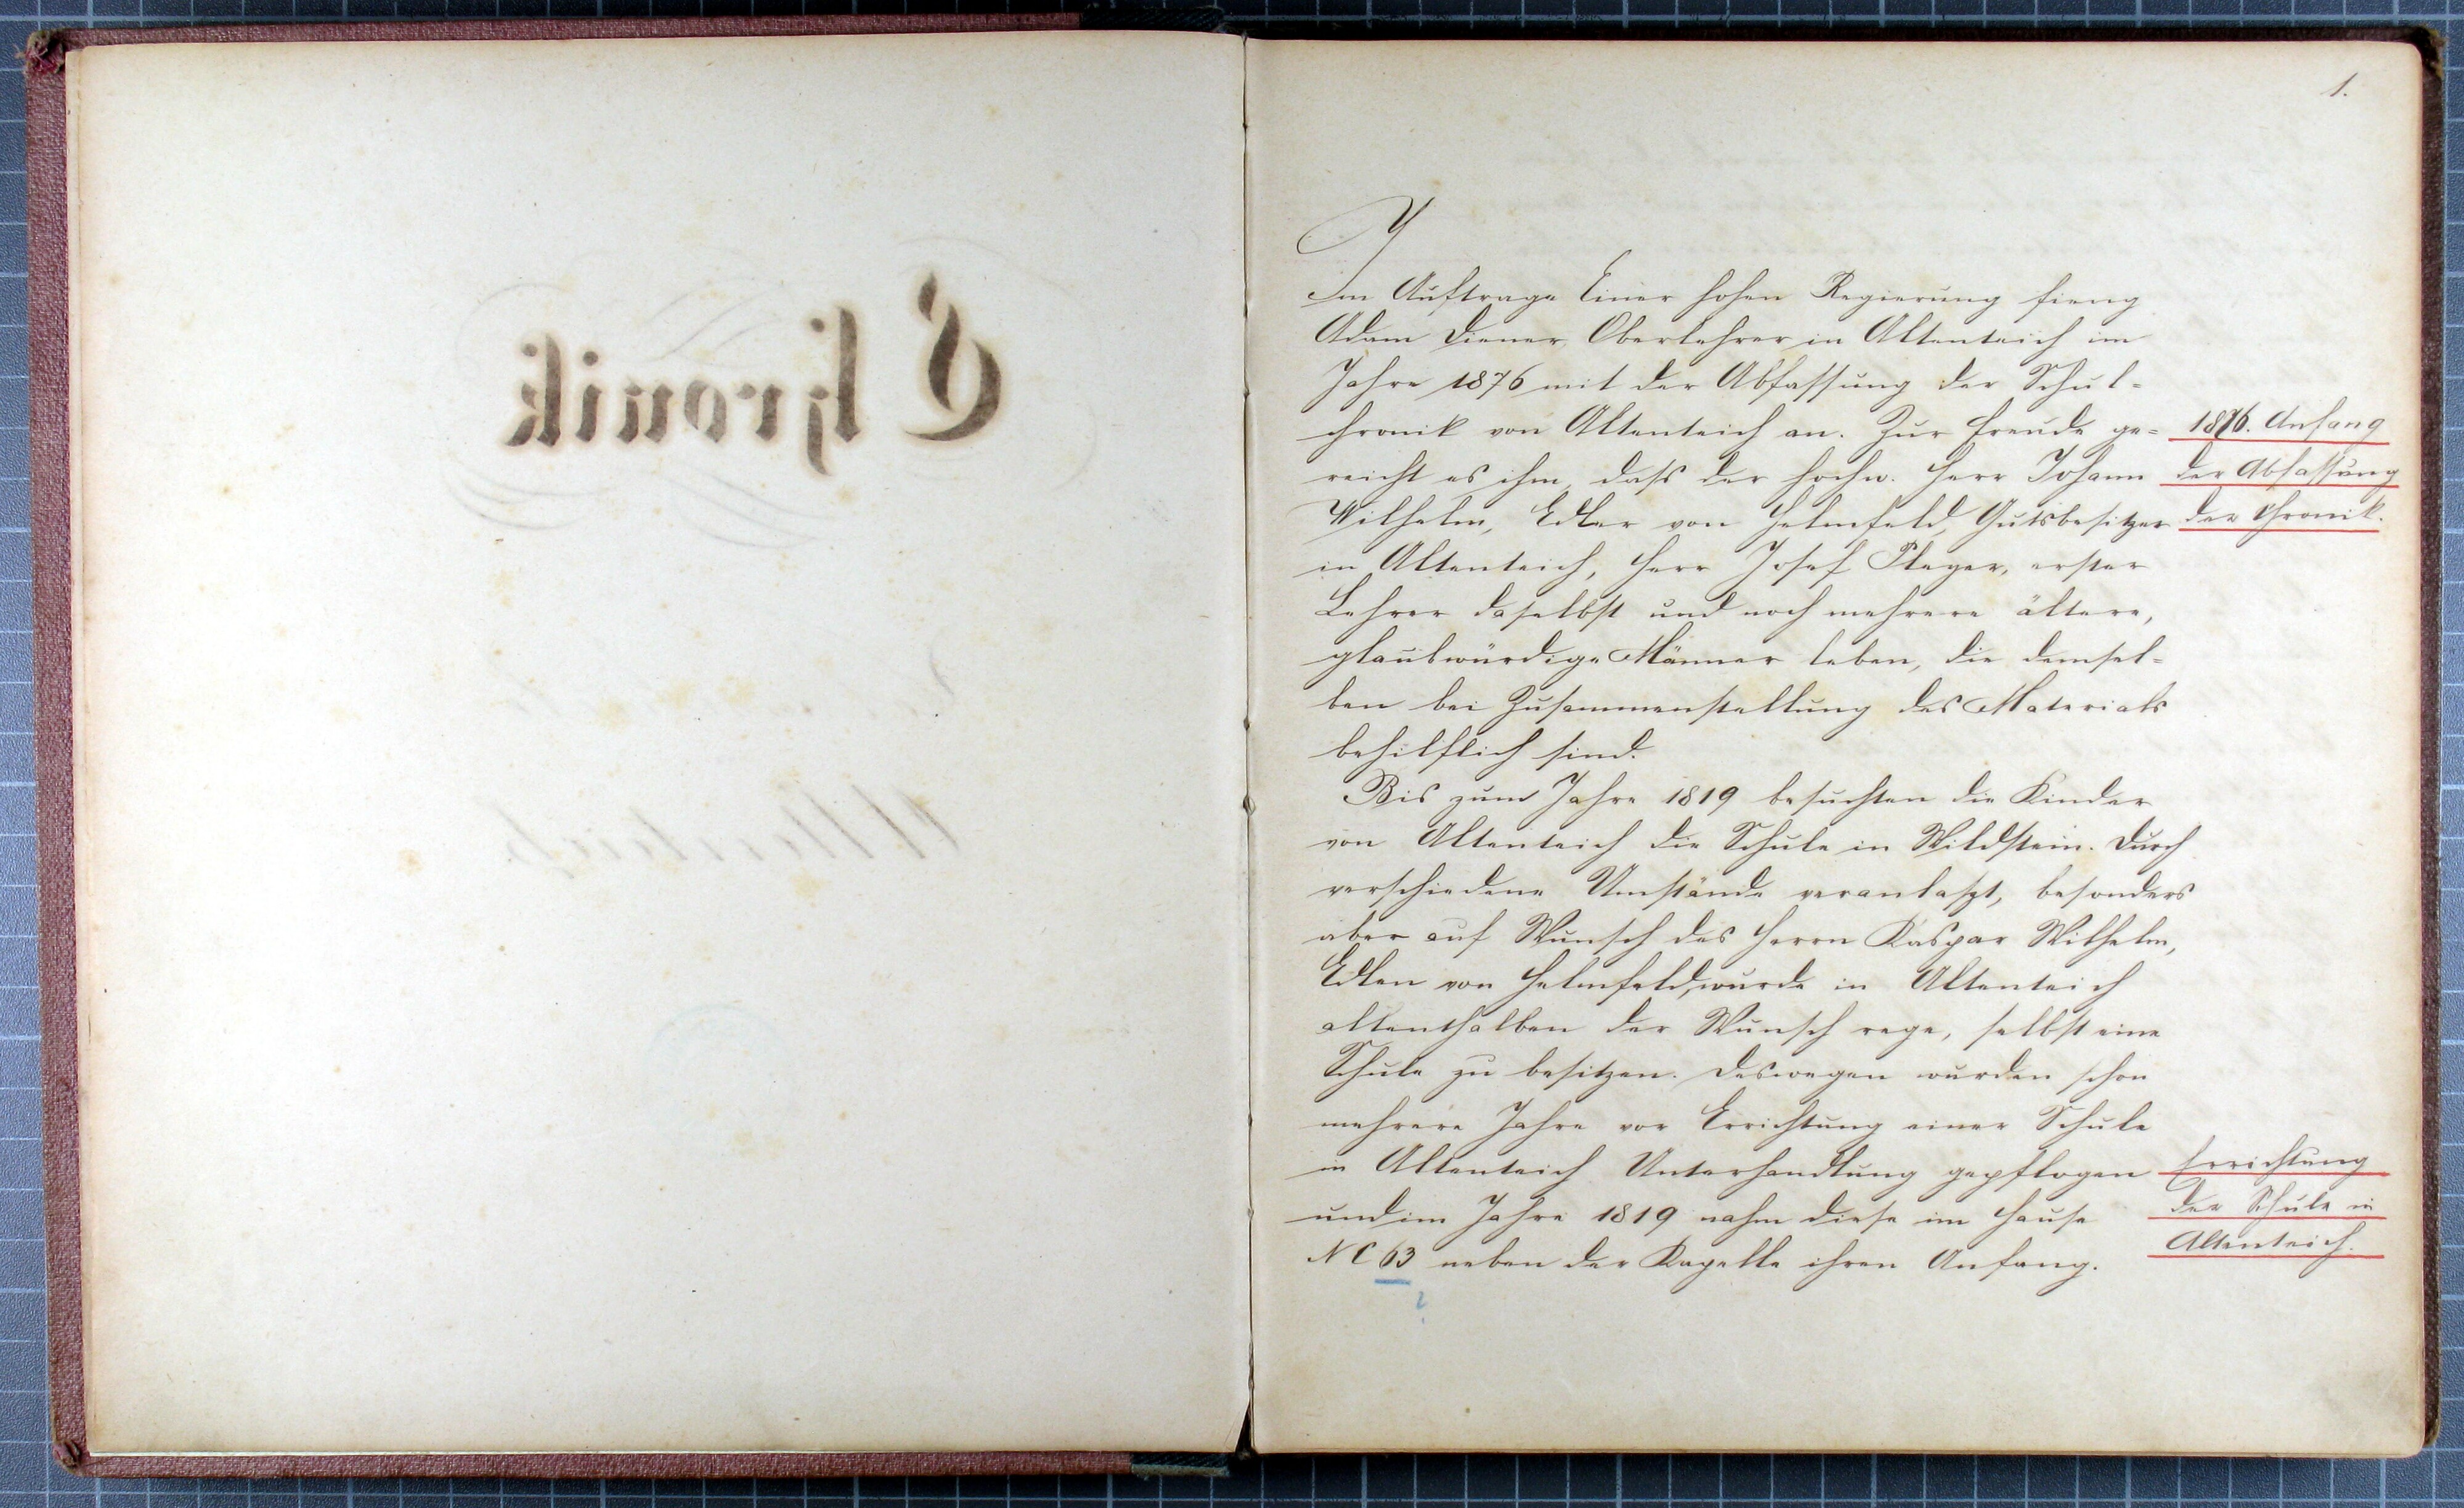 Chronik
Altenteich
1.
Im Auftrage Einer hohen Regierung fieng
Adam Diener, Oberlehrer in Altenteich im
Jahre 1876 mit der Abfassung der Schul-
chronik von Altenteich an. Zur Freude ge-
reicht es ihm, dass der hochw. Herr Johann
Wilhelm, Edler von Helmfeld, Gutsbesitzer
in Altenteich, Herr Josef Pleyer, erster
Lehrer daselbst und noch mehrere ältere,
glaubwürdige Männer leben, die demsel-
ben bei Zusammenstellung des Materials
behilflich sind.
1876. Anfang
der Abfassung
der Chronik.
Bis zum Jahre 1819 besuchten die Kinder
von Altenteich die Schule in Wildstein. Durch
verschiedene Umstände veranlaszt, besonders
aber auf Wunsch des Herrn Kaspar Wilhelm,
Edlen von Helmfeld, wurde in Altenteich
allenthalben der Wunsch rege, selbst eine
Schule zu besitzen. Deswegen wurden schon
mehrere Jahre vor Errichtung einer Schule
in Altenteich Unterhandlung gepflogen
und im Jahre 1819 nahm diese im Hause
NC 63 neben der Kapelle ihren Anfang.
?
Errichtung
der Schule in
Altenteich.